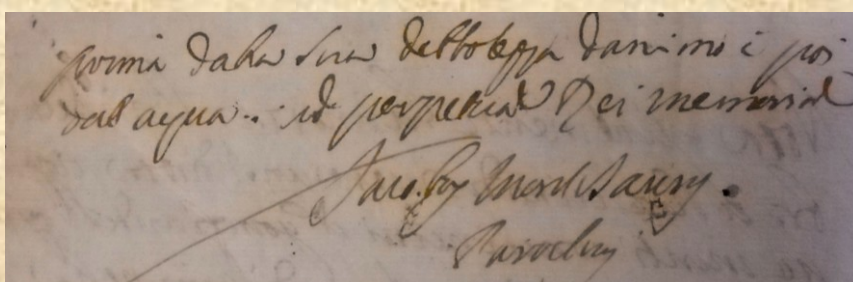 prima dalla sua debolezza danimo e poi
dal aqua.. ad perpetuam Dei memoriam
Parochus